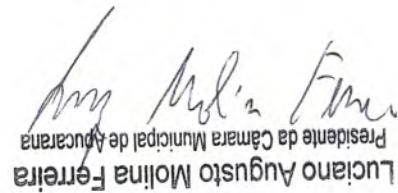 Luciano Augusto Molina Ferreira
Presidente da Câmara Municipal de Apucarana